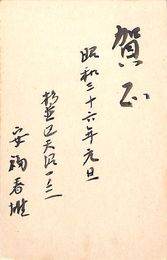 賀正
昭和三十六年元旦
杉並区天沼一ノ二一
安